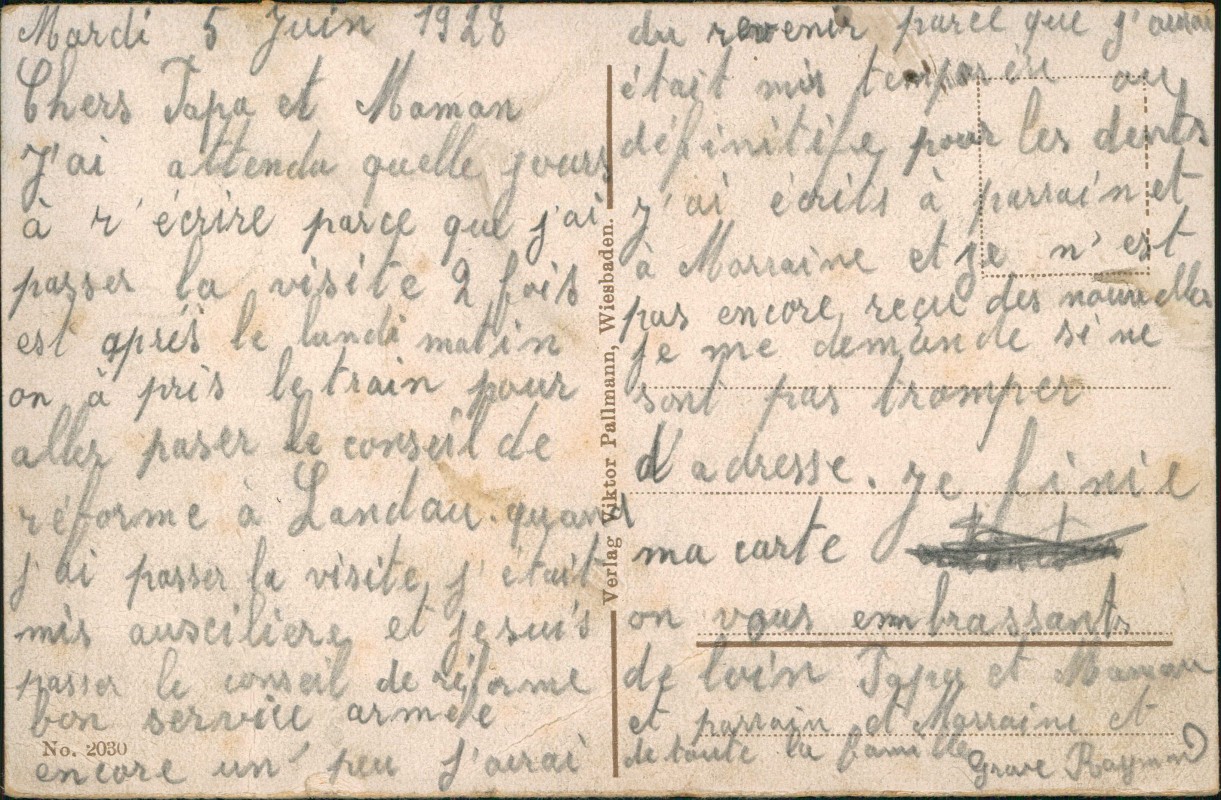 Mardi 5 Juin 1928
Chers Papa et Maman
J'ai attendu quelle jours
à r'écrire parce que j'ai
passer la visite 2 fois
est après le lundi matin
on à pris le train pour
aller paser le conseil de
réforme à Landau. quand
j'ai passer la visite j'était
mis auxciliere et je suis
passer le conseil de réforme
bon service armée
encore un peu j'orai
No. 2030
Verlag Viktor Pallmann, Wiesbaden.
du revenir parce que j'
était mis temporére ou
définitife pour les dents
J'ai écrits à parrain et
à Marraine et je n'est
pas encore reçu des nouvelles
je me demande si ne
sont pas tromper
d'adresse. Je finie
ma carte
on vous embrassants
de loin Papa et Maman
et parrain et Marraine et
de toute la famille
Grave Raymond